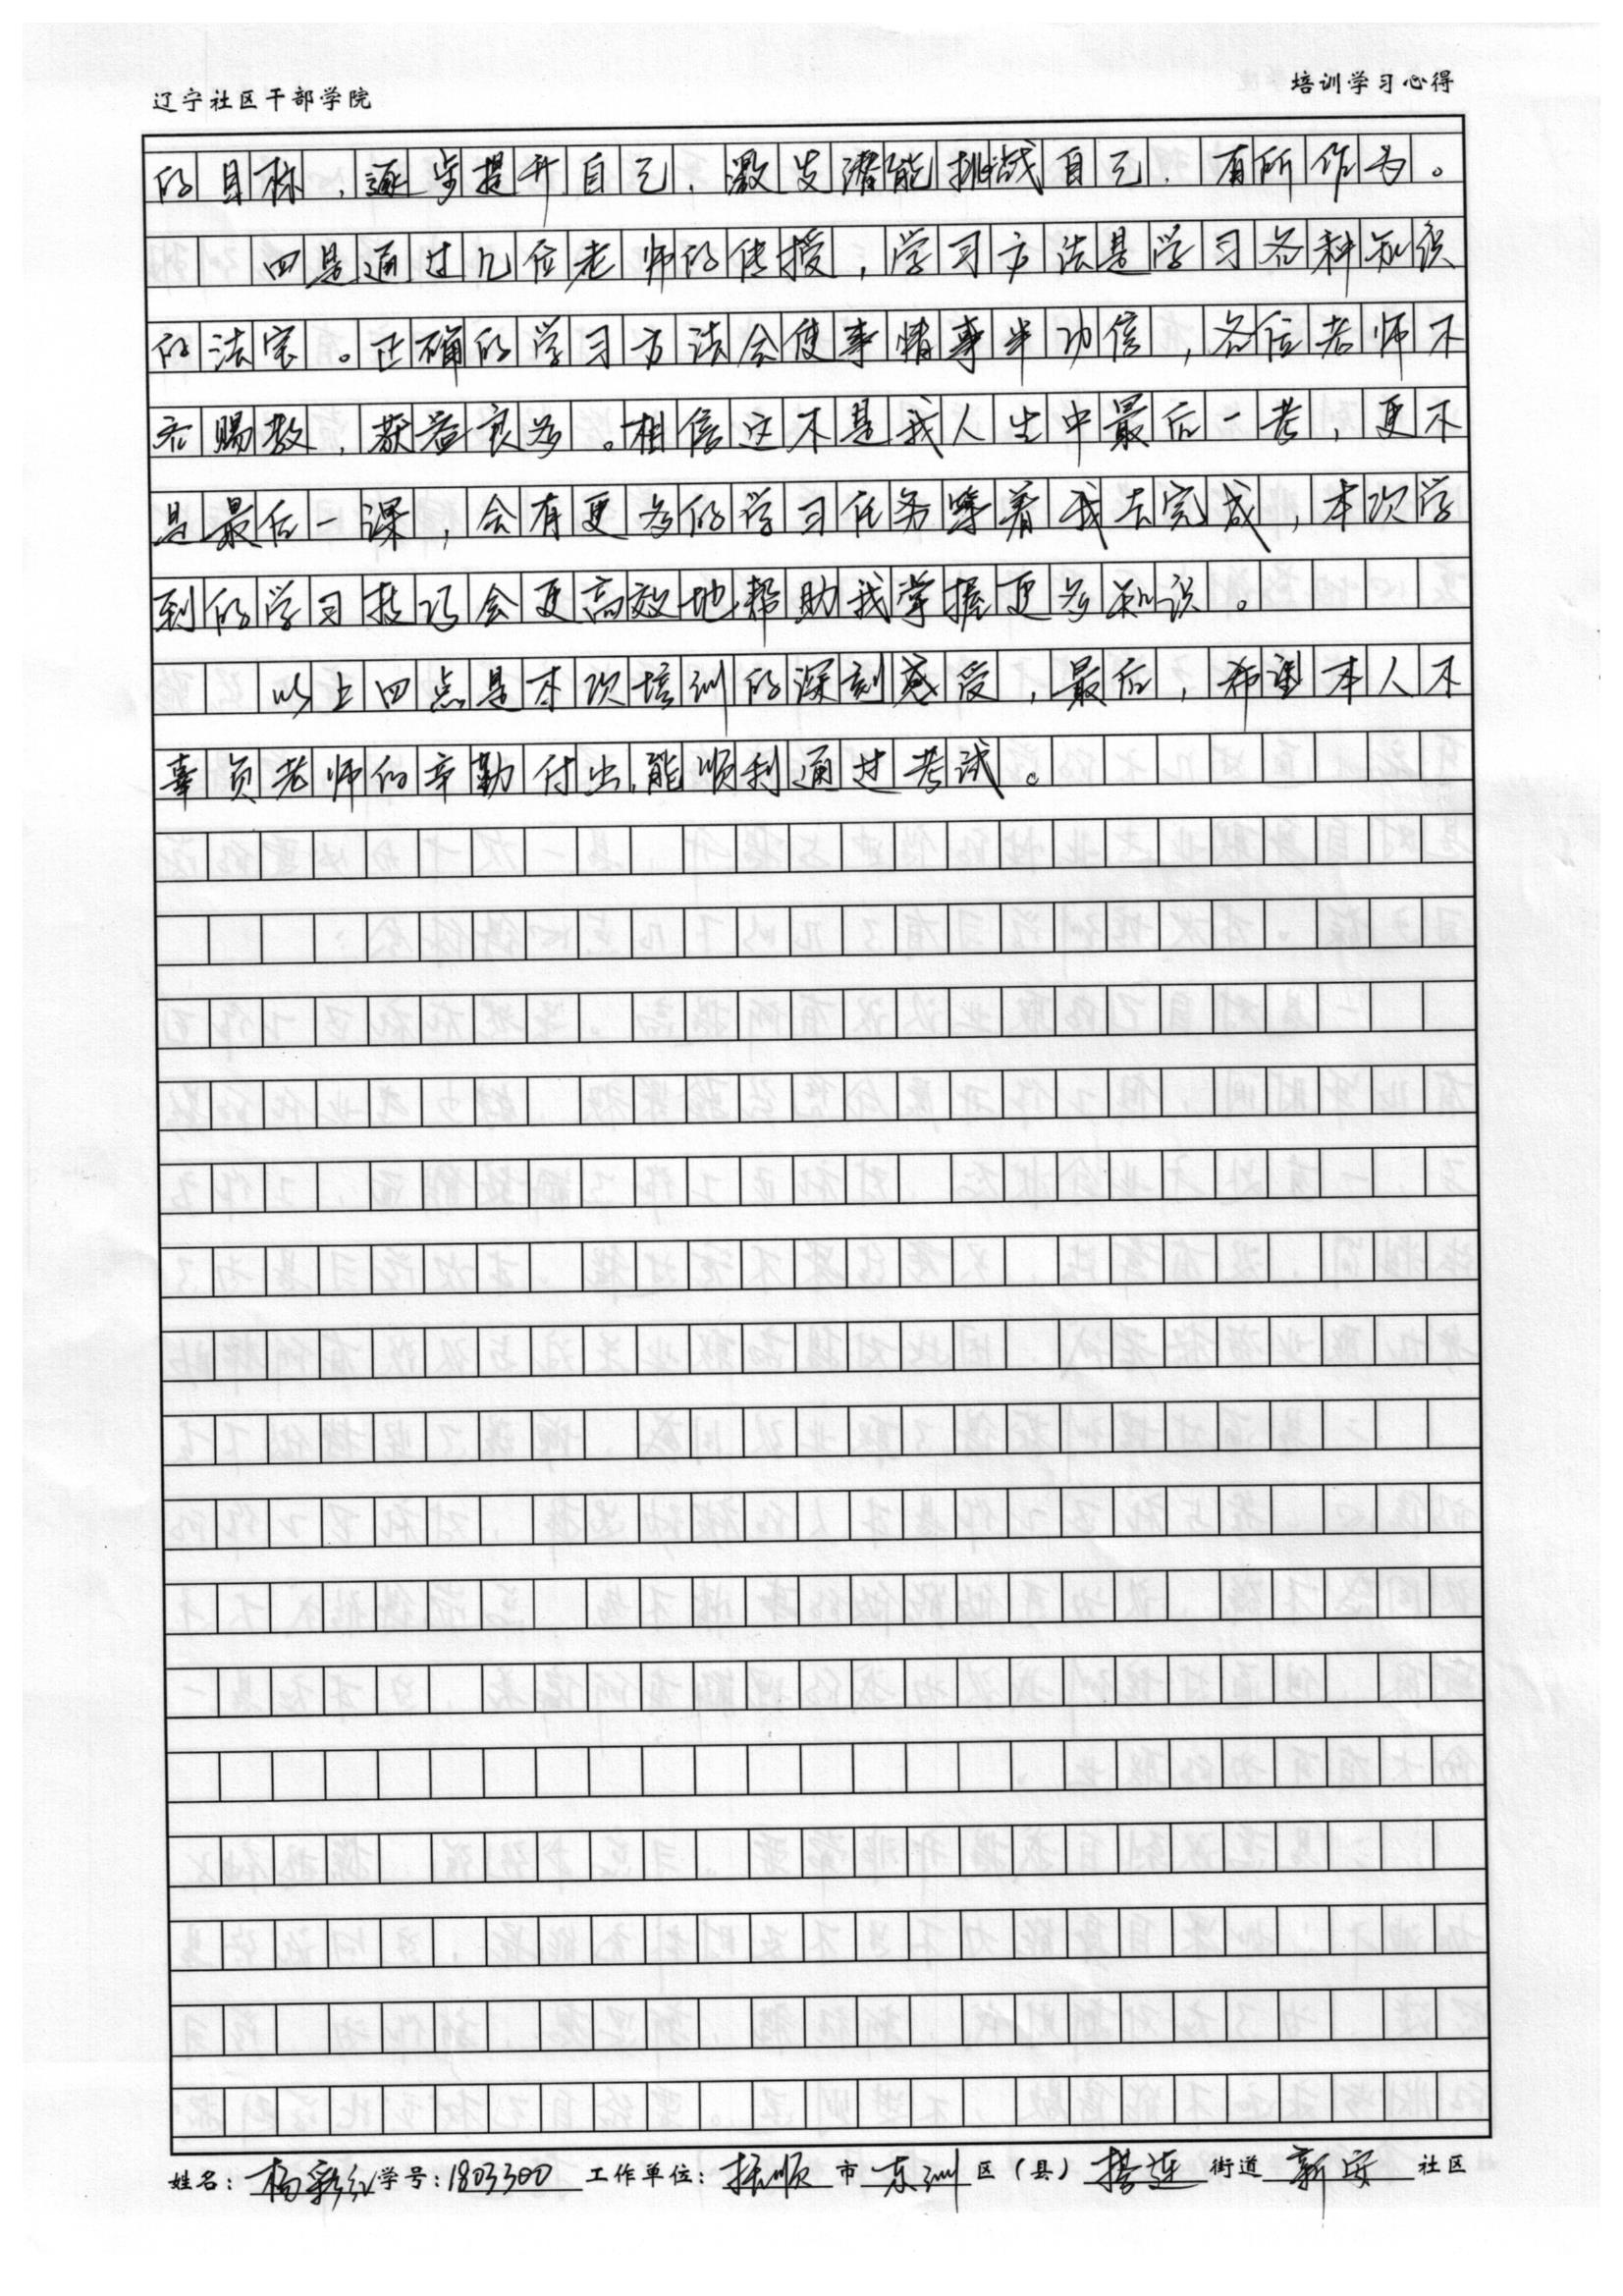 辽宁社区干部学院
培训学习心得
的目标，逐步提升自己，激发潜能挑战自己，有所作为。
四是通过几位老师的传授，学习方法是学习各种知识
的法宝。正确的学习方法会使事情事半功倍，各位老师不
吝赐教，获益良多。相信这不是我人生中最后一考，更不
是最后一课，会有更多的学习任务等着我去完成，本次学
到的学习技巧会更高效地帮助我掌握更多知识。
以上四点是本次培训的深刻感受，最后，希望本人不
辜负老师的辛勤付出，能顺利通过考试。
姓名：杨彩红学号：1803300 工作单位：抚顺市东洲区（县）搭连街道新安社区